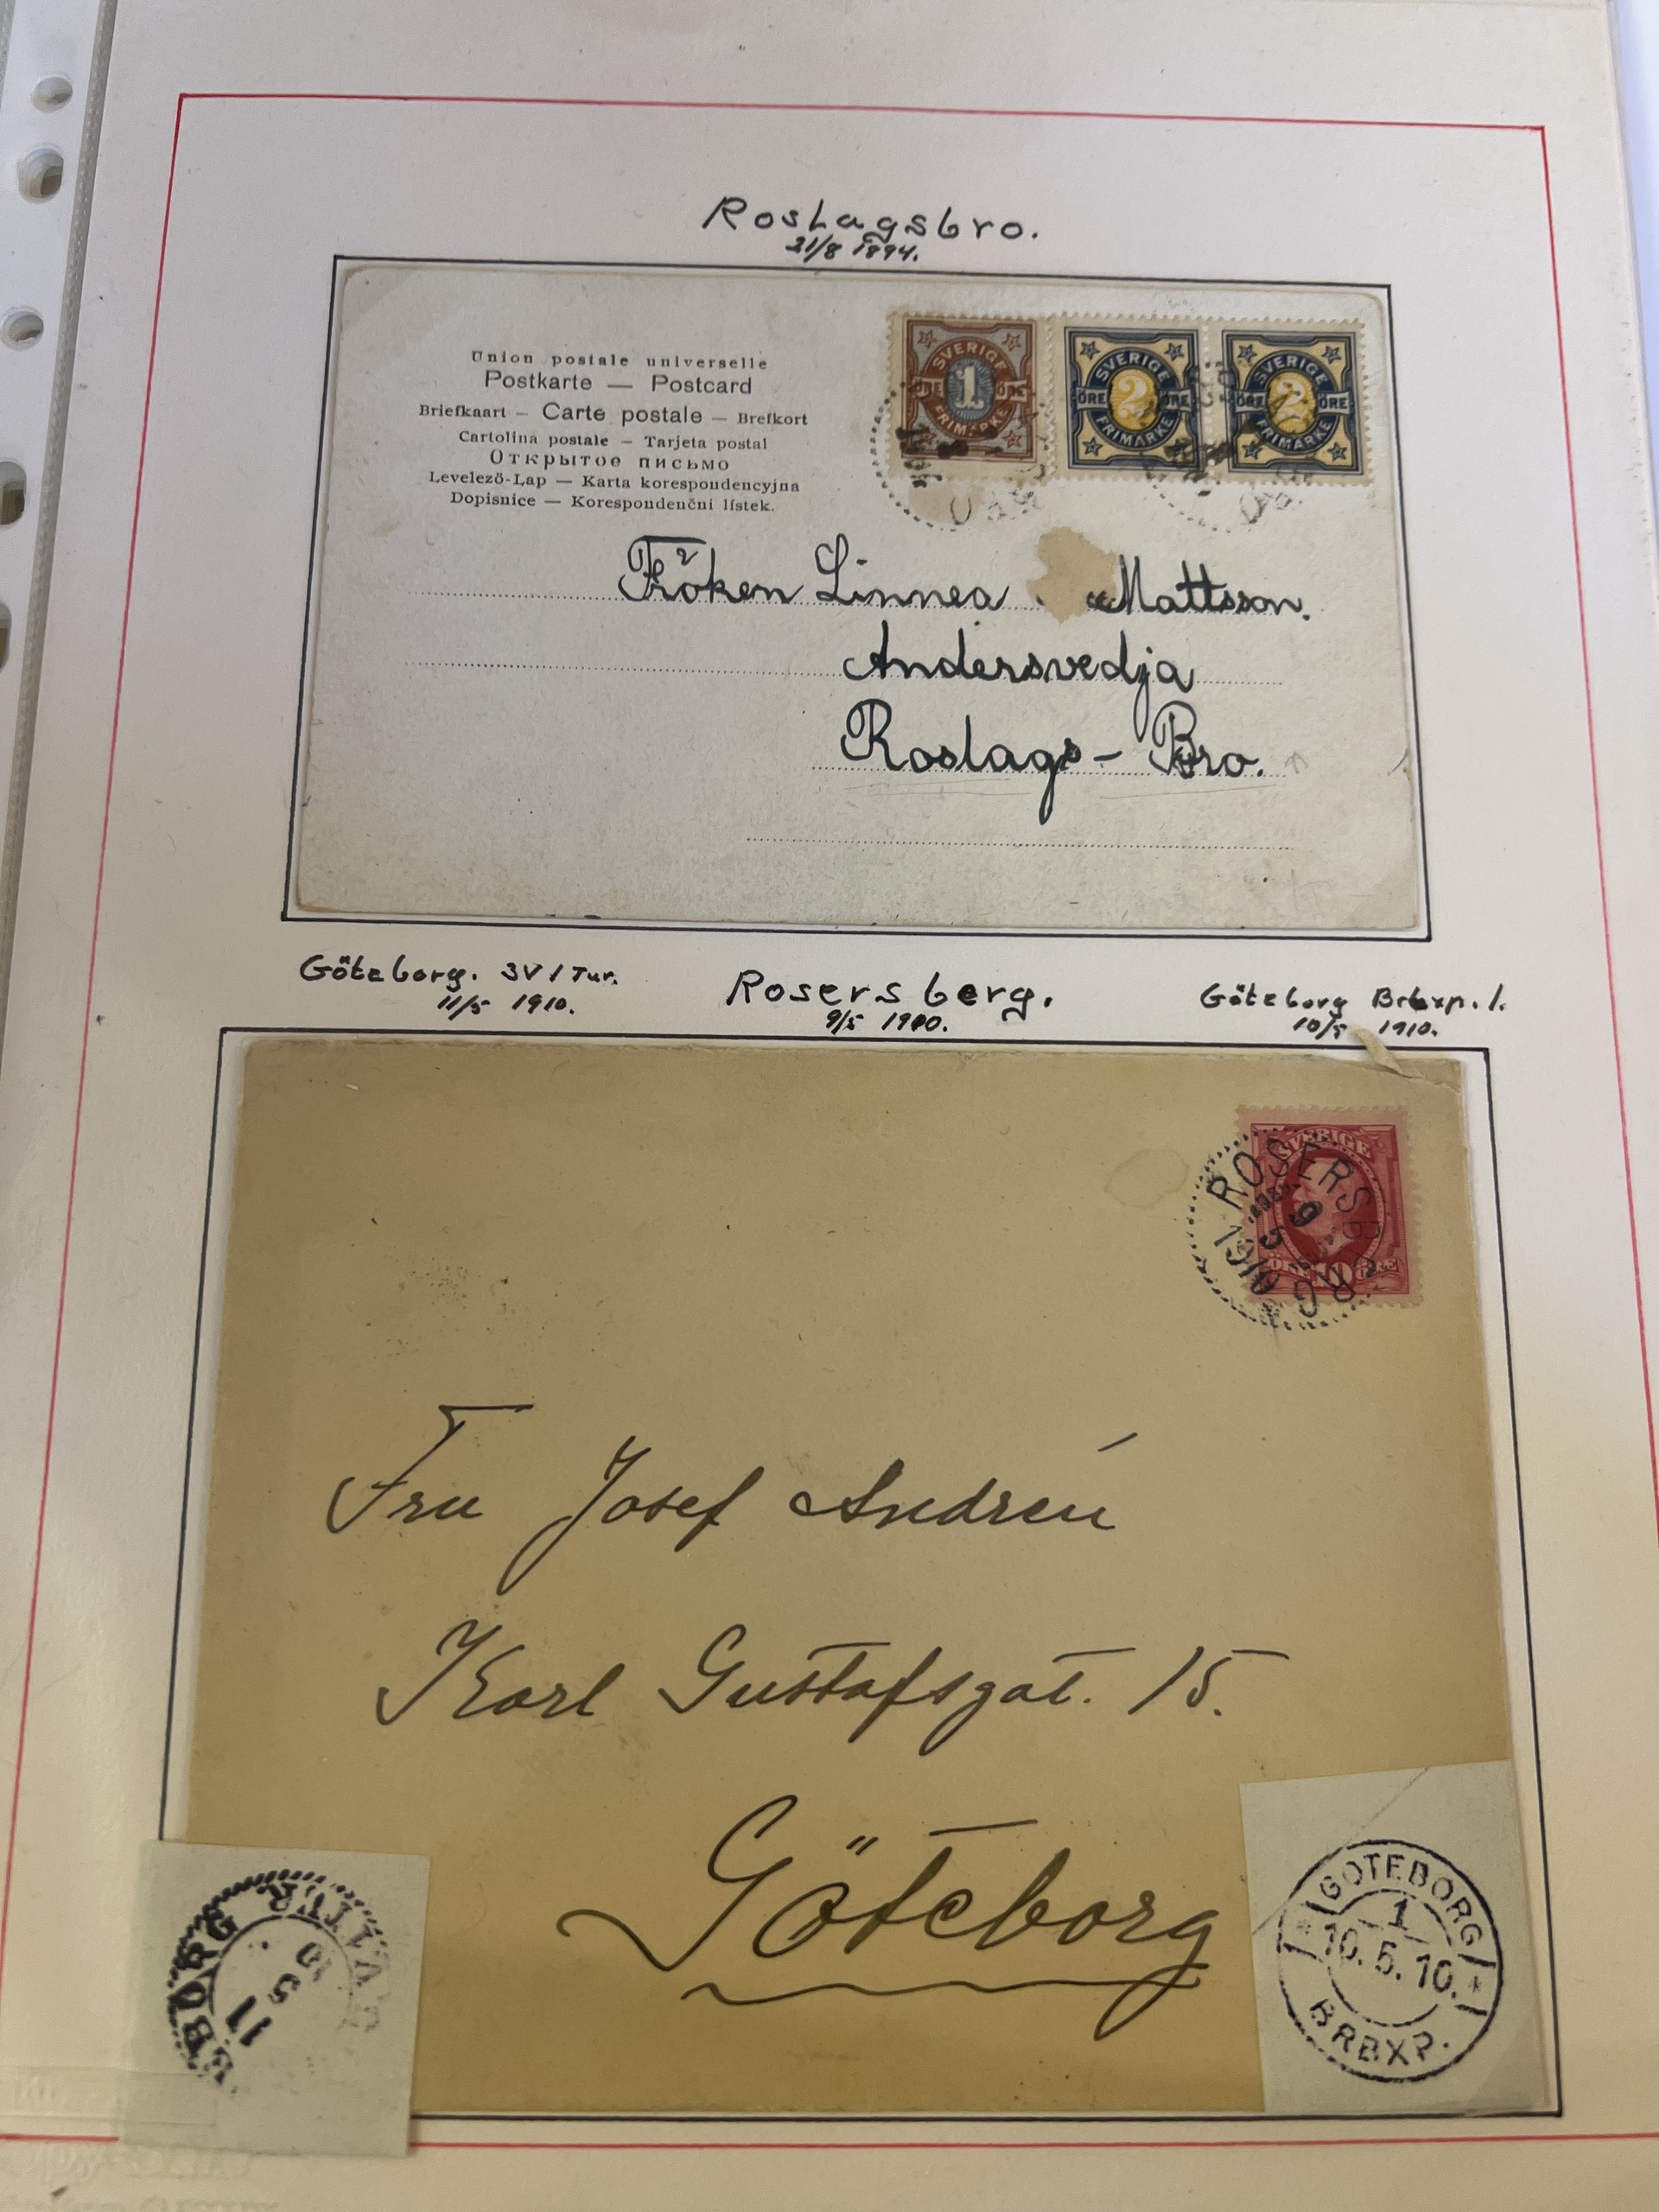 Roslagsbro.
21/8 1894.
Union postale universelle
Postkarte — Postcard
Briefkaart — Carte postale — Brefkort
Cartolina postale — Tarjeta postal
Открытое письмо
Levelező-Lap — Karta korespondencyjna
Dopisnice — Korespondenčni lístek.
SVERIGE
1
ÖRE ÖRE
FRIMÄRKE
SVERIGE
2
ÖRE ÖRE
FRIMÄRKE
SVERIGE
2
ÖRE ÖRE
FRIMÄRKE
Fröken Linnea Mattsson.
Andersvedja
Roslags- Bro.
Göteborg. 3V1Tur.
11/5 1910.
Rosersberg.
9/5 1910.
Göteborg Brbxp. 1.
10/5 1910.
SVERIGE
ÖRE 10 ÖRE
ROSERSBERG
9
5
1910
Fru Josef Andrén
Karl Gustafsgat. 15.
Göteborg
EBORG
TUR
11
5
10
GÖTEBORG
1
10. 5. 10.
BRBXP.